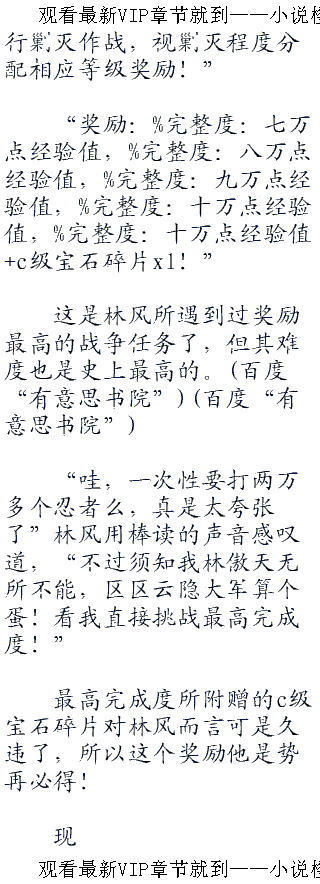 观看最新VIP章节就到——小说
行剿灭作战，视剿灭程度分
配相应等级奖励！”
“奖励：%完整度：七万
点经验值，%完整度：八万点
经验值，%完整度：九万点经
验值，%完整度：十万点经验
值，%完整度：十万点经验值
+c级宝石碎片x1！”
这是林风所遇到过奖励
最高的战争任务了，但其难
度也是史上最高的。(百度
“有意思书院”)(百度“有
意思书院”)
“哇，一次性要打两万
多个忍者么，真是太夸张
了”林风用棒读的声音感叹
道，“不过须知我林傲天无
所不能，区区云隐大军算个
蛋！看我直接挑战最高完成
度！”
最高完成度所附赠的c级
宝石碎片对林风而言可是久
违了，所以这个奖励他是势
再必得！
现
观看最新VIP章节就到——小说